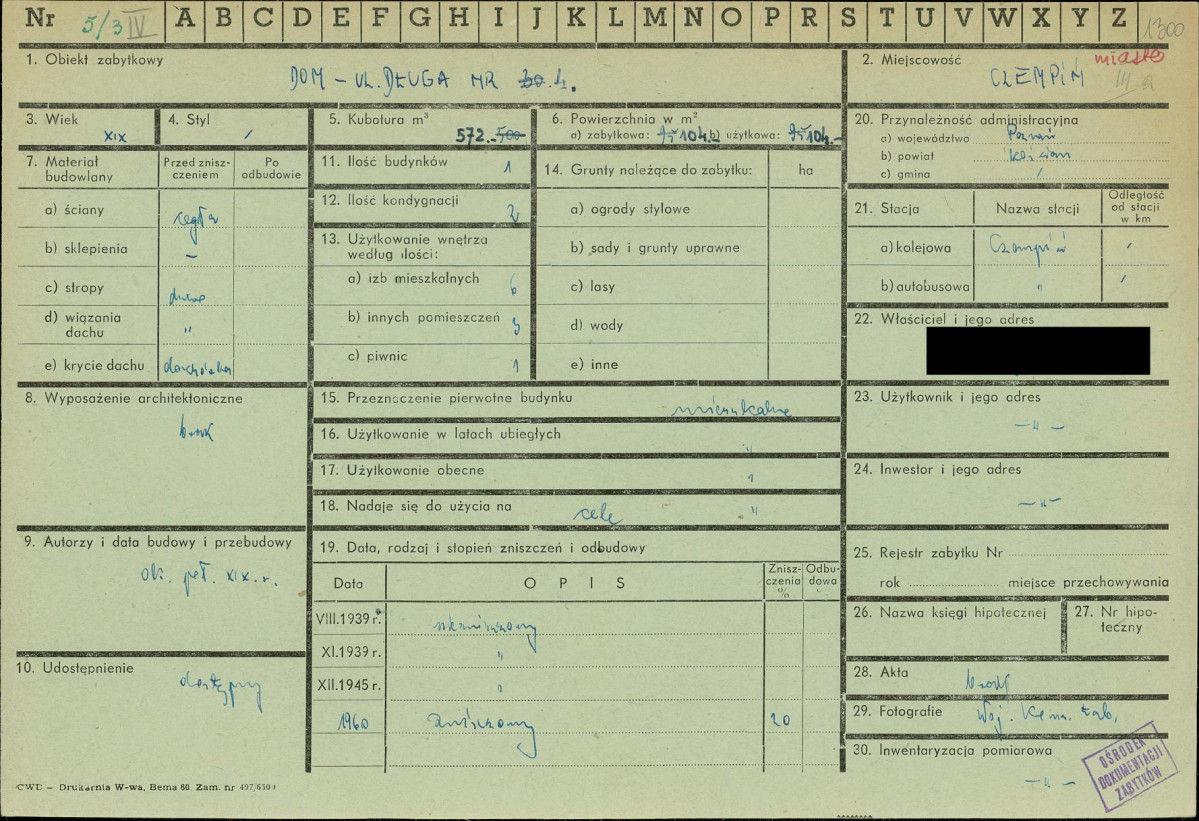 Nr 5/3 IV A B C D E F G H I J K L M N O P R S T U V W X Y Z 1300
1. Obiekt zabytkowy
DOM - UL. DŁUGA NR 30. 4.
2. Miejscowość miasto
CZEMPIŃ III a
3. Wiek
XIX
4. Styl
/
5. Kubatura m³
572.- 500
6. Powierzchnia w m²
a) zabytkowa: 104.- b) użytkowa: 104.-
20. Przynależność administracyjna
a) województwo Poznań
b) powiat Kościan
c) gmina /
7. Materiał budowlany
Przed zniszczeniem
Po odbudowie
a) ściany cegła
b) sklepienia -
c) stropy drewn
d) wiązania dachu "
e) krycie dachu dachówka
11. Ilość budynków 1
12. Ilość kondygnacji 2
13. Użytkowanie wnętrza według ilości:
a) izb mieszkalnych 6
b) innych pomieszczeń 3
c) piwnic 1
14. Grunty należące do zabytku: ha
a) ogrody stylowe
b) sady i grunty uprawne
c) lasy
d) wody
e) inne
21. Stacja Nazwa stacji Odległość od stacji w km
a) kolejowa Czempiń /
b) autobusowa " /
22. Właściciel i jego adres
8. Wyposażenie architektoniczne
brak
15. Przeznaczenie pierwotne budynku mieszkalne
16. Użytkowanie w latach ubiegłych "
17. Użytkowanie obecne "
18. Nadaje się do użycia na cele "
23. Użytkownik i jego adres
- " -
24. Inwestor i jego adres
- " -
9. Autorzy i data budowy i przebudowy
ok. poł. XIX. w.
19. Data, rodzaj i stopień zniszczeń i odbudowy
Data OPIS Zniszczenia % Odbudowa %
VIII.1939 r. niezniszczony
XI.1939 r. "
XII.1945 r. "
1960 zniszczony 20
25. Rejestr zabytku Nr
rok miejsce przechowywania
26. Nazwa księgi hipotecznej
27. Nr hipoteczny
10. Udostępnienie
dostępny
28. Akta brak
29. Fotografie Woj. Kons. Zab.
30. Inwentaryzacja pomiarowa
- " -
OŚRODEK
DOKUMENTACJI
ZABYTKÓW
CWD - Drukarnia W-wa, Bema 60. Zam. nr 497/6500